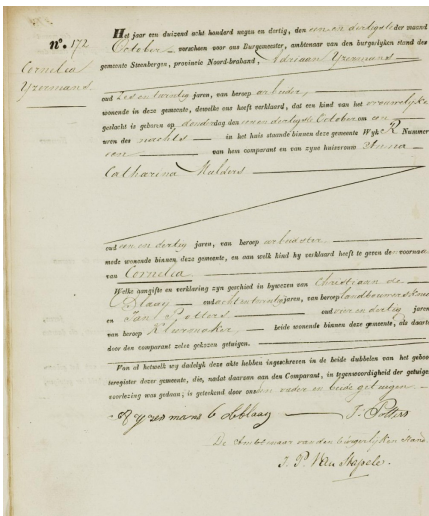 N°. 172
Cornelia
Yzermans
Het jaar een duizend acht honderd negen en dertig, den een en dertigste der maand
October verscheen voor ons Burgemeester, ambtenaar van den burgerlyken stand der
gemeente Steenbergen, provincie Noord-braband, Adriaan Yzermans
oud zes en twintig jaren, van beroep arbeider
wonende in deze gemeente, dewelke ons heeft verklaard, dat een kind van het vrouwelyke
geslacht is geboren op donderdag den een en dertigste October om een
uren des nachts in het huis staande binnen deze gemeente Wyk R Nummer
een van hem comparant en van zyne huisvrouw Anna
Catharina Mulders
oud een en dertig jaren, van beroep arbeidster
mede wonende binnen deze gemeente, en aan welk kind hy verklaard heeft te geven de voornaam
van Cornelia
Welke aangifte en verklaring zyn geschied in bywezen van Christiaan de
Blaay oud acht en twintig jaren, van beroep landbouwersknecht
en Jan Potters oud vier en dertig jaren
van beroep Kleermaker beide wonende binnen deze gemeente, als daartoe
door den comparant zelve gekozen getuigen.
Van al hetwelk wy dadelyk deze akte hebben ingeschreven in de beide dubbelen van het geboorteregister
dezer gemeente, die, nadat daarvan aan den Comparant, in tegenwoordigheid der getuigen
voorlezing was gedaan, is geteekend door ons den vader en beide getuigen
A yzermans C deblaaij J. Potters
De Ambtenaar van den burgerlyken Stand
J. P. Van Stapele.